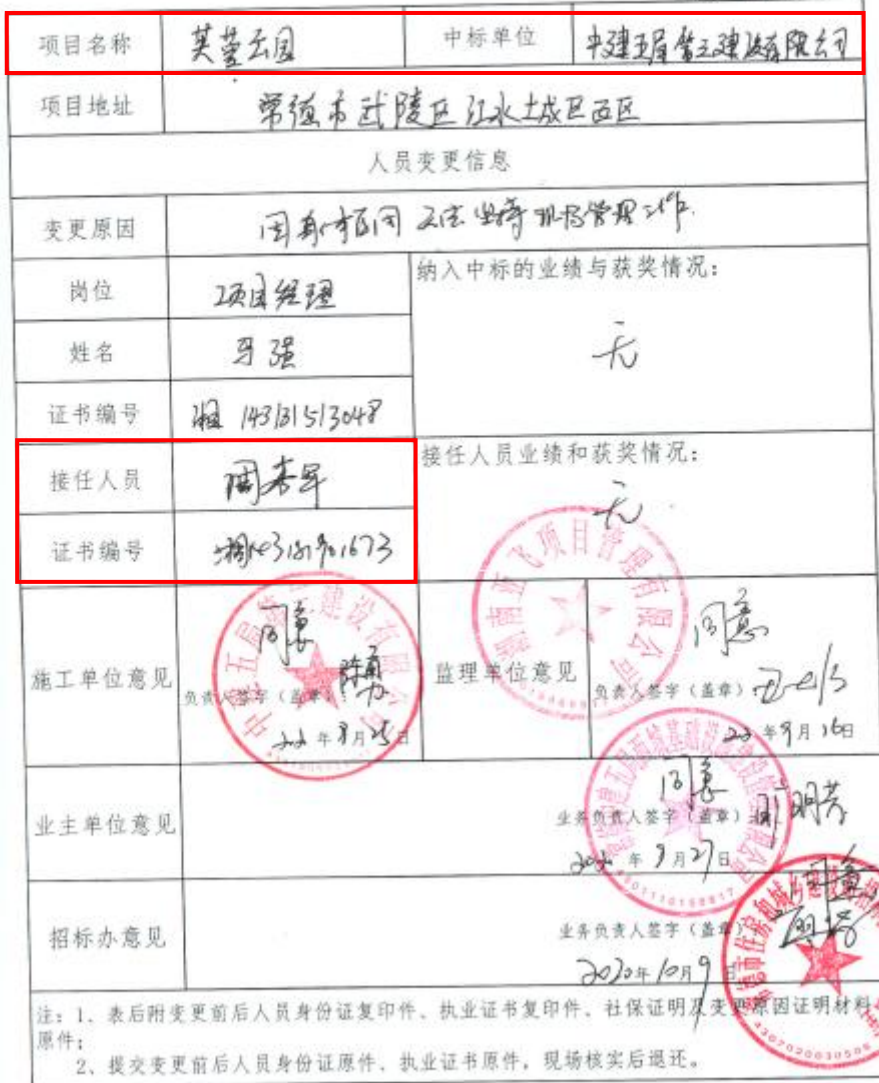 项目名称 芙蓉云园 中标单位 中建五局第三建设有限公司
项目地址 常德市武陵区江北城区西区
人员变更信息
变更原因 因身体原因 无法坚持现场管理工作.
岗位 项目经理 纳入中标的业绩与获奖情况：
无
姓名
证书编号 湘 143131513048
接任人员 接任人员业绩和获奖情况：
无
证书编号
施工单位意见 同意
负责人签字（盖章）：
年8月25日
监理单位意见 同意
负责人签字（盖章）
年9月16日
业主单位意见 同意
业务负责人签字（盖章）
2020年9月27日
招标办意见 同意
业务负责人签字（盖章）
2020年10月9日
注：1、表后附变更前后人员身份证复印件、执业证书复印件、社保证明及变更原因证明材料
原件；
2、提交变更前后人员身份证原件、执业证书原件，现场核实后退还。
中建五局第三建设有限公司
湖南亚飞项目管理有限公司
4307020030508